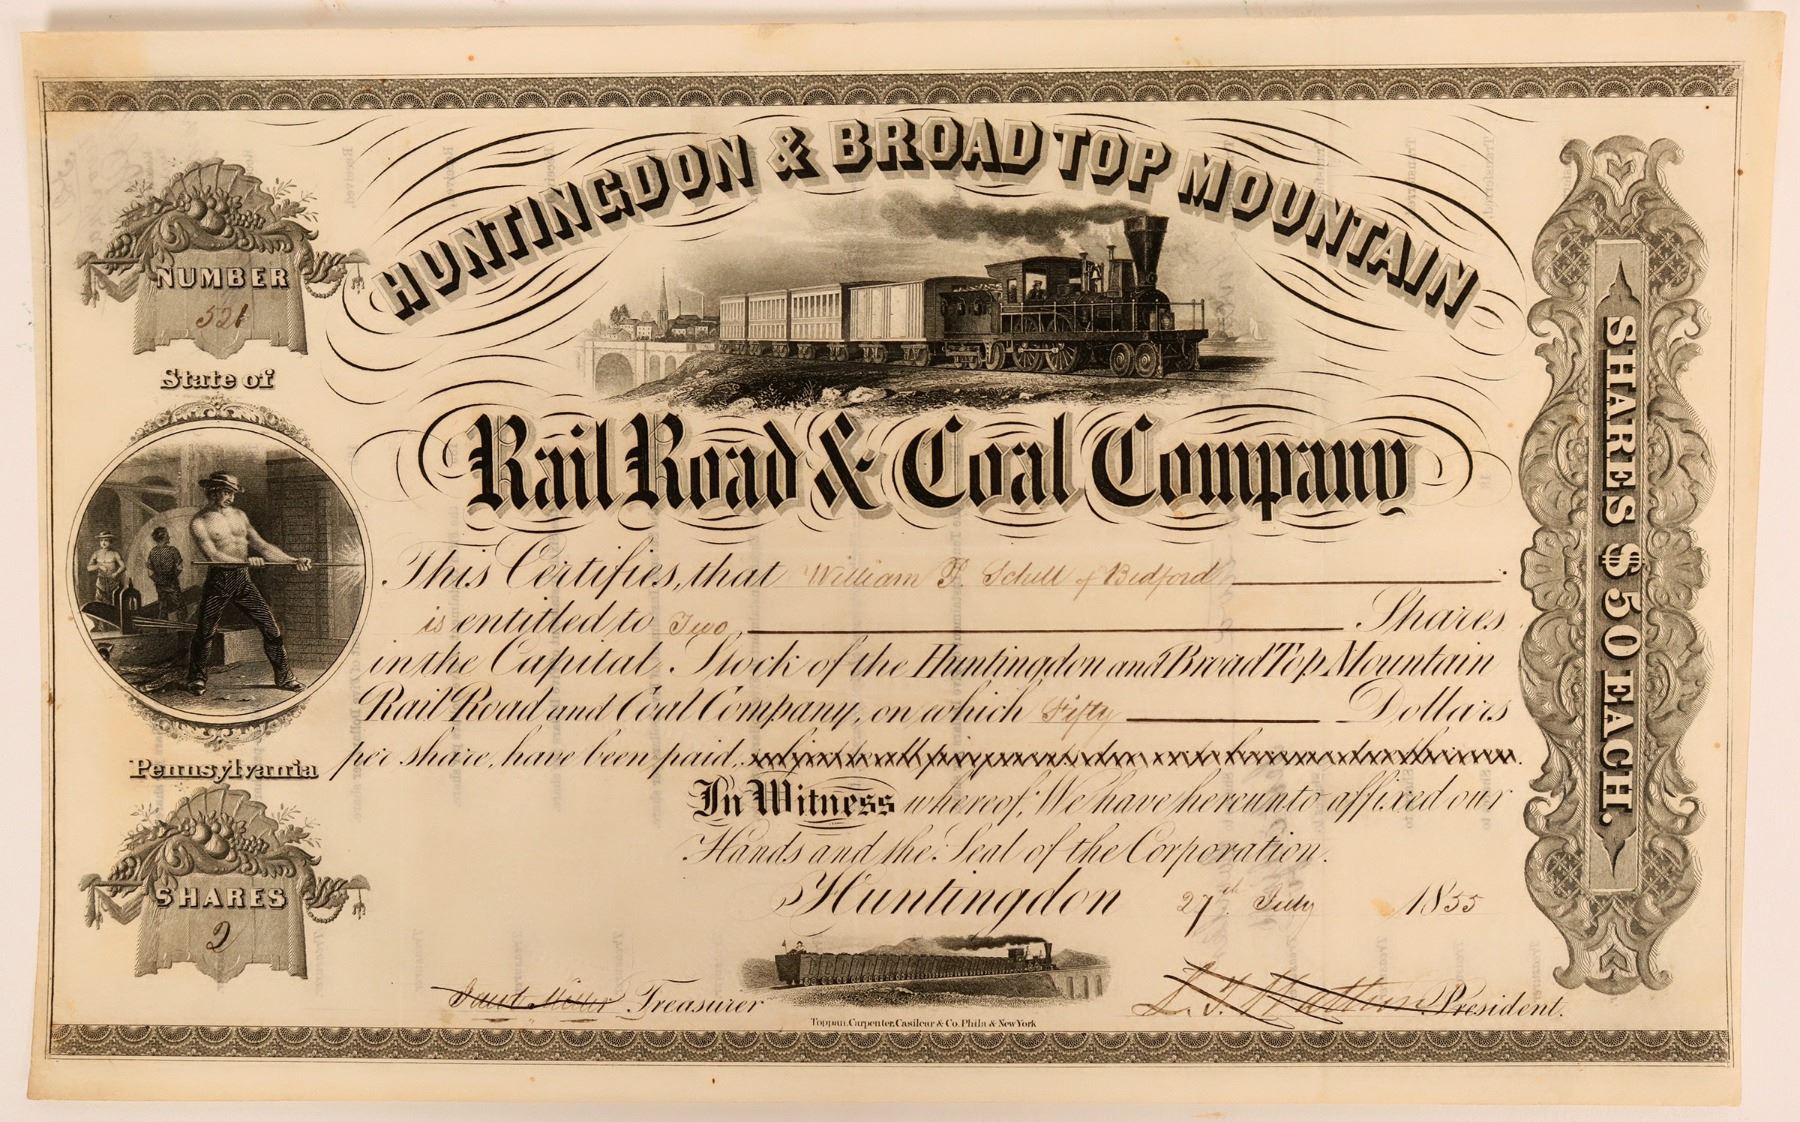 HUNTINGDON & BROAD TOP MOUNTAIN
Rail Road & Coal Company
NUMBER
521
State of
Pennsylvania
SHARES
2
SHARES $50 EACH.
This Certifies, that William P. Schell of Bedford
is entitled to Two Shares
in the Capital Stock of the Huntingdon and Broad Top Mountain
Rail Road and Coal Company, on which Fifty Dollars
per share, have been paid,
In Witness whereof, We have hereunto affixed our
Hands and the Seal of the Corporation.
Huntingdon 27th July 1855
Jacob Miller Treasurer
President.
Toppan, Carpenter, Casilear & Co. Phila & New York